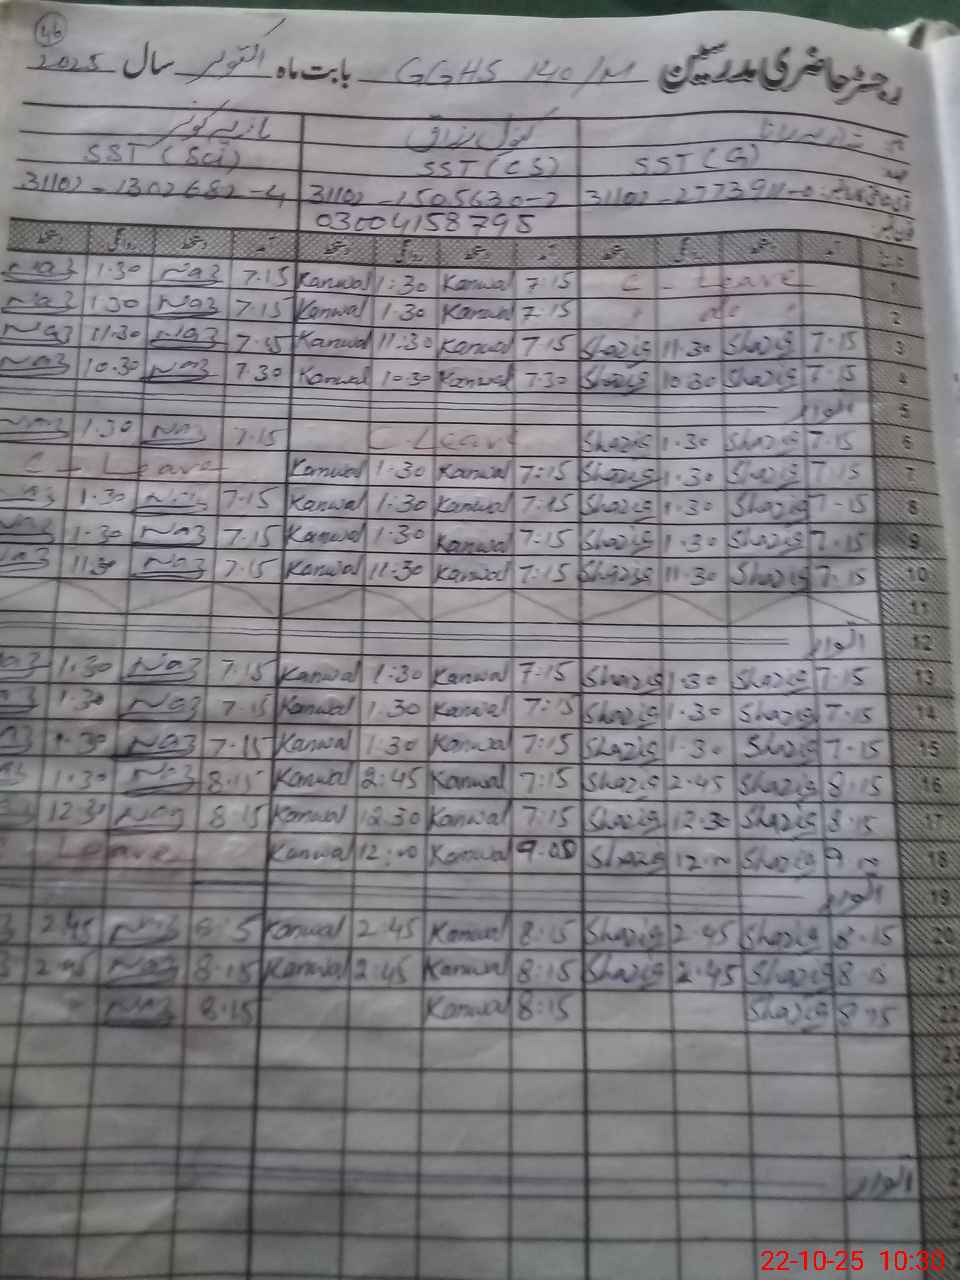 46
رجسٹر حاضری مدرسین GGHS 140/M بابت ماہ اکتوبر سال 2025
کنول رزاق نازیہ کوثر
SST (G) SST (CS) SST (Sci)
31102-1505630-2 31102-1302682-4
03004158795
1 C - Leave 7:15 Kanwal 1:30 Kanwal 7.15 Naz 1.30 Naz
2 do 7:15 Kanwal 1.30 Kanwal 7.15 Naz 1.30 Naz
3 7.15 Shazia 11.30 Shazia 7.15 Kanwal 11:30 Kanwal 7.15 Naz 11.30 Naz
4 7.15 Shazia 10.30 Shazia 7.30 Kanwal 10.30 Kanwal 7.30 Naz 10.30 Naz
5 اتوار
6 7.15 Shazia 1.30 Shazia C-Leave 7.15 Naz 1.30 Naz
7 7.15 Shazia 1.30 Shazia 7:15 Kanwal 1.30 Kanwal C - Leave
8 7-15 Shazia 1.30 Shazia 7:15 Kanwal 1:30 Kanwal 7.15 Naz 1.30 Naz
9 7.15 Shazia 1.30 Shazia 7:15 Kanwal 1.30 Kanwal 7.15 Naz 1.30 Naz
10 7.15 Shazia 11.30 Shazia 7:15 Kanwal 11.30 Kanwal 7.15 Naz 11.30 Naz
11
12 اتوار
13 7.15 Shazia 1.30 Shazia 7:15 Kanwal 1.30 Kanwal 7.15 Naz 1.30 Naz
14 7.15 Shazia 1.30 Shazia 7:15 Kanwal 1.30 Kanwal 7.15 Naz 1.30 Naz
15 7.15 Shazia 1.30 Shazia 7:15 Kanwal 1:30 Kanwal 7.15 Naz 1.30 Naz
16 8.15 Shazia 2.45 Shazia 7:15 Kanwal 2:45 Kanwal 8.15 Naz 1.30 Naz
17 8.15 Shazia 12.30 Shazia 7:15 Kanwal 12.30 Kanwal 8.15 Naz 12.30
18 Shazia 12.00 Shazia 9.00 Kanwal 12:00 Kanwal Leave
19 اتوار
20 8.15 Shazia 2.45 Shazia 8:15 Kanwal 2.45 Kanwal Naz 2.45
21 Shazia 2.45 Shazia 8:15 Kanwal 2:45 Kanwal 8.15 Naz 2.45
22 Shazia 8:15 Kanwal 8.15 Naz
23
اتوار
22-10-25 10:30